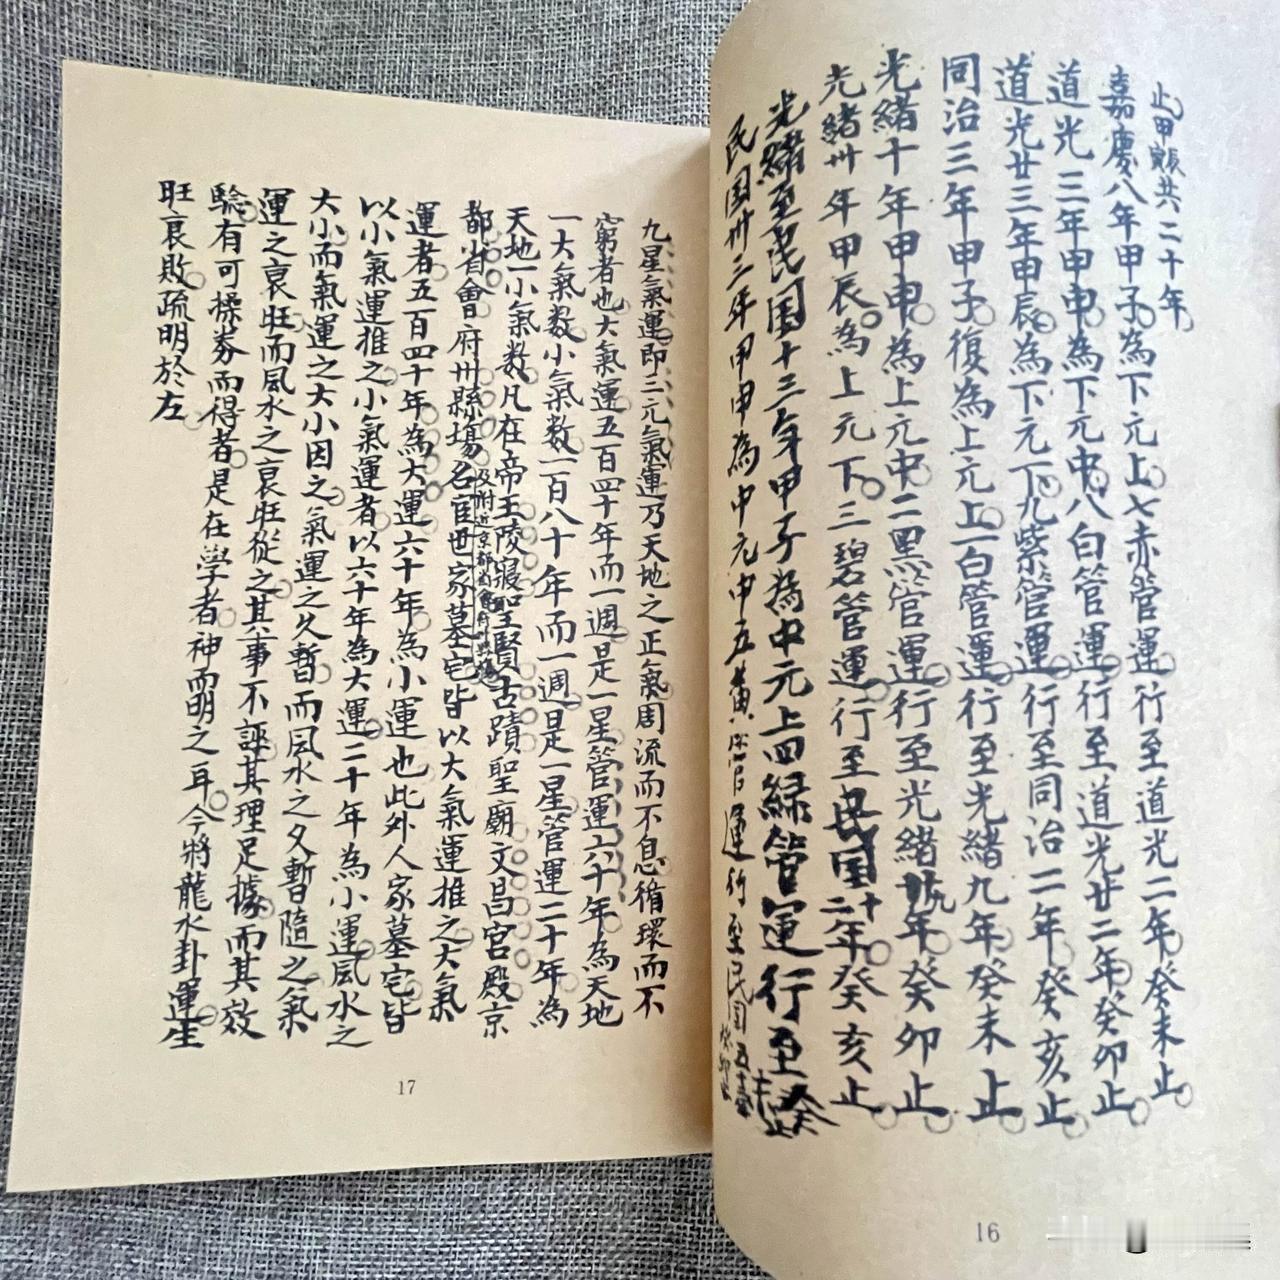 止甲寅辰共二十年
嘉慶八年甲子為下元上七赤管運行至道光二年癸未止
道光三年甲申為下元中八白管運行至道光廿二年癸卯止
道光廿三年甲辰為下元下九紫管運行至同治二年癸亥止
同治三年甲子復為上元上一白管運行至光緒九年癸未止
光緒十年甲申為上元中二黑管運行至光緒年癸卯止
光緒卅年甲辰為上元下三碧管運行至民国十二年癸亥止
光緒至民国十三年甲子為中元上四緑管運行至癸未止
民国卅三年甲申為中元中五黄管運行至民囯五十
16
九星氣運即三元氣運乃天地之正氣周流而不息循環而不
窮者也大氣運五百四十年而一週是一星管運六十年為天地
一大氣数小氣数一百八十年而一週是一星管運二十年為
天地一小氣数凡在帝王陵寢聖賢古蹟聖廟文昌宮殿京
都省會府州縣塲名宦世家墓宅皆以大氣運推之大氣
及附近京都省會府州縣塲
運者五百四十年為大運六十年為小運也此外人家墓宅皆
以小氣運推之小氣運者以六十年為大運二十年為小運風水之
大小而氣運之大小因之氣運之久暫而風水之久暫隨之氣
運之衰旺而風水之衰旺從之其事不誣其理足據而其效
驗有可操券而得者是在學者神而明之耳今將龍水卦運生
旺衰敗疏明於左
17